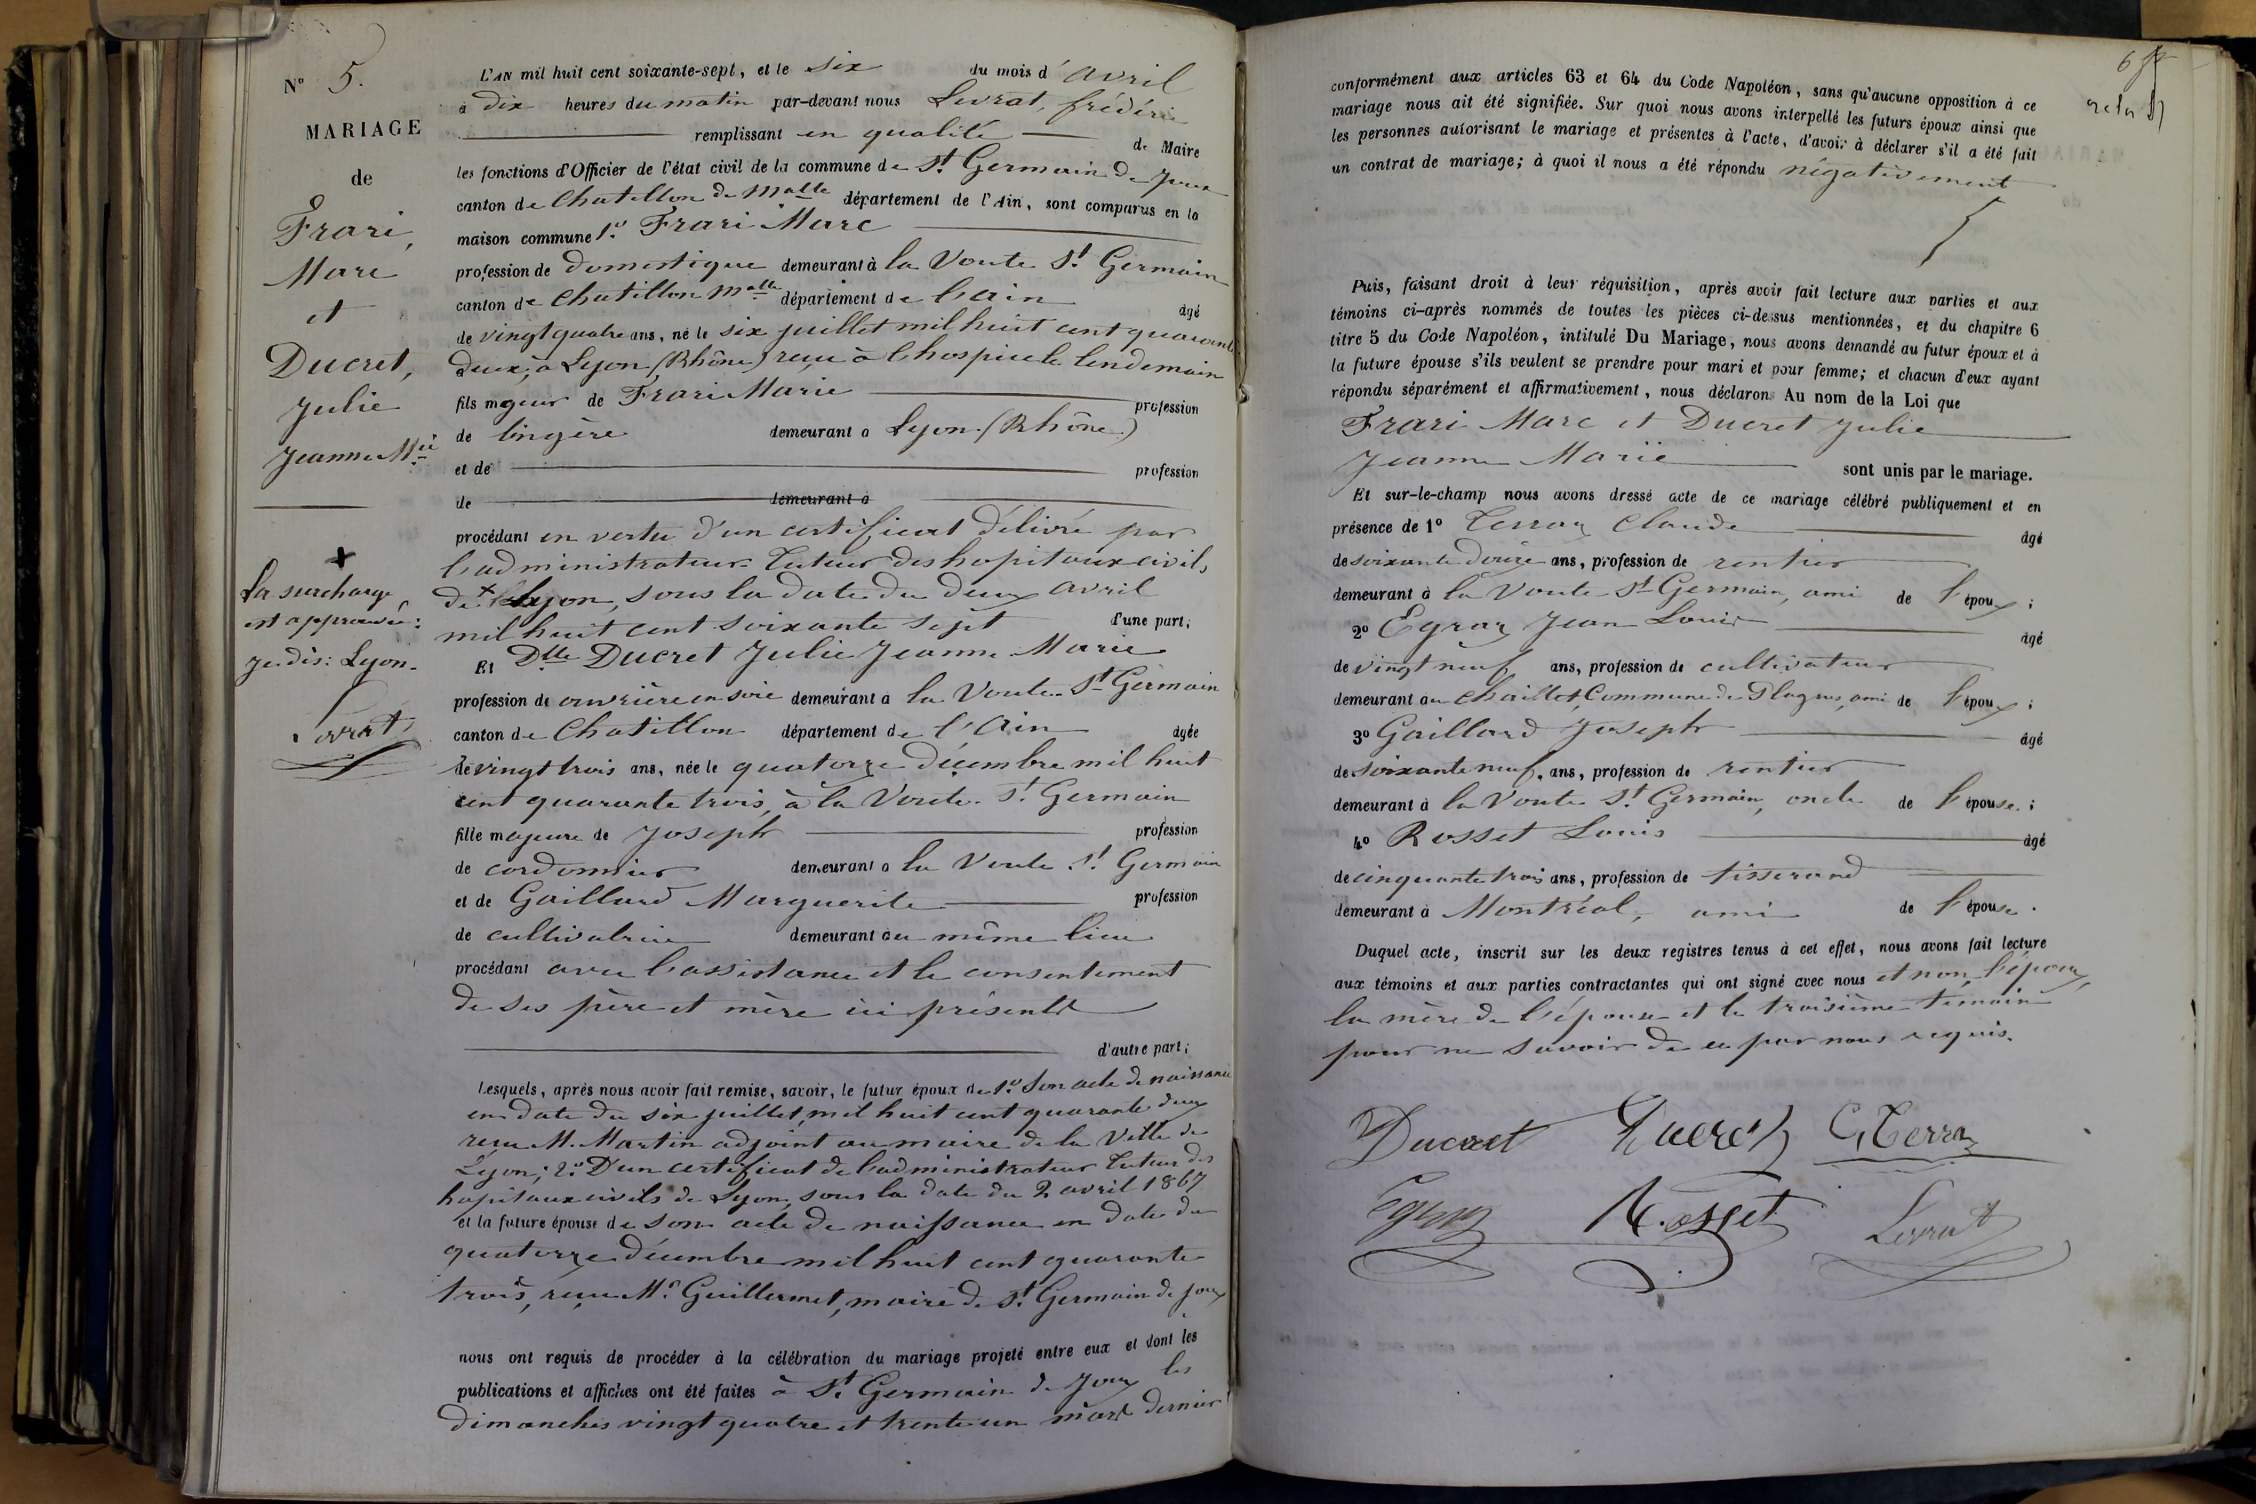 N° 5.
MARIAGE
de
Frari,
Marc
et
Ducret,
Julie
Jeanne Mie
La surcharge
est approuvée:
je dis: Lyon.
Levrat
L'AN mil huit cent soixante-sept, et le six du mois d'avril
à dix heures du matin par-devant nous Levrat, frédéric
remplissant en qualité de Maire
les fonctions d'Officier de l'état civil de la commune de St Germain de Joux
canton de Chatillon de Mlle département de l'Ain, sont comparus en la
maison commune 1° Frari Marc
profession de domestique demeurant à la Voute St Germain
canton de Chatillon Mlle département de l'ain âgé
de vingt quatre ans, né le six juillet mil huit cent quarante
deux, à Lyon (Rhône) reçu à l'hospice le lendemain
fils majeur de Frari Marie profession
de lingère demeurant à Lyon (Rhône)
et de profession
de demeurant à
procédant en vertu d'un certificat délivré par
l'administrateur Tuteur des hopitaux civils
de + Lyon, sous la date du deux avril
mil huit cent soixante sept d'une part;
Et Dlle Ducret Julie Jeanne Marie
profession de ouvrière en soie demeurant à la Voute St Germain
canton de Chatillon département de l'Ain âgée
de vingt trois ans, née le quatorze décembre mil huit
cent quarante trois, à la Voute St Germain
fille majeure de Joseph profession
de cordonnier demeurant à la Voute St Germain
et de Gaillard Marguerite profession
de cultivatrice demeurant au même lieu
procédant avec l'assistance et le consentement
de ses père et mère ici présents
d'autre part;
Lesquels, après nous avoir fait remise, savoir, le futur époux de 1° Son acte de naissance
en date du six juillet, mil huit cent quarante deux
reçu M. Martin adjoint au maire de la Ville de
Lyon; 2° D'un certificat de l'administrateur Tuteur des
hopitaux civils de Lyon, sous la date du 2 avril 1867
et la future épouse de son acte de naissance en date du
quatorze décembre mil huit cent quarante
trois, reçu Mr Guillermet, maire de St Germain de Joux
nous ont requis de procéder à la célébration du mariage projeté entre eux et dont les
publications et affiches ont été faites à St Germain de Joux les
dimanches vingt quatre et trente un mars dernier
conformément aux articles 63 et 64 du Code Napoléon, sans qu'aucune opposition à ce
mariage nous ait été signifiée. Sur quoi nous avons interpellé les futurs époux ainsi que
les personnes autorisant le mariage et présentes à l'acte, d'avoir à déclarer s'il a été fait
un contrat de mariage; à quoi il nous a été répondu négativement
Puis, faisant droit à leur réquisition, après avoir fait lecture aux parties et aux
témoins ci-après nommés de toutes les pièces ci-dessus mentionnées, et du chapitre 6
titre 5 du Code Napoléon, intitulé Du Mariage, nous avons demandé au futur époux et à
la future épouse s'ils veulent se prendre pour mari et pour femme; et chacun d'eux ayant
répondu séparément et affirmativement, nous déclarons Au nom de la Loi que
Frari Marc et Ducret Julie
Jeanne Marie sont unis par le mariage.
Et sur-le-champ nous avons dressé acte de ce mariage célébré publiquement et en
présence de 1° Terraz Claude âgé
de soixante douze ans, profession de rentier
demeurant à la Voute St Germain, ami de l'époux;
2° Egraz Jean Louis âgé
de vingt neuf ans, profession de cultivateur
demeurant au Chaillet, Commune de Plagnes, ami de l'époux;
3° Gaillard Joseph âgé
de soixante neuf ans, profession de rentier
demeurant à la Voute St Germain, oncle de l'épouse;
4° Rosset Louis âgé
de cinquante trois ans, profession de tisserand
demeurant à Montréal, ami de l'épouse.
Duquel acte, inscrit sur les deux registres tenus à cet effet, nous avons fait lecture
aux témoins et aux parties contractantes qui ont signé avec nous et non l'époux,
la mère de l'épouse et le troisième témoin
pour ne savoir de ce par nous requis.
Ducret Ducret C, Terraz
Egraz R.osset Levrat